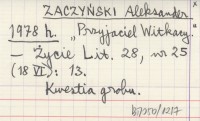 ZACZYŃSKI Aleksander
1978 h. „Przyjaciel Witkacy."
— Życie Lit. 28, nr 25
(18 VI): 13.
Kwestia grobu.